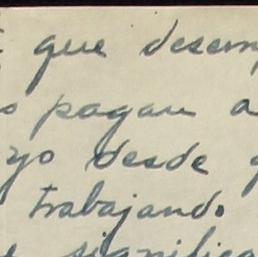 que desem
pagan a
yo desde
trabajando.
significa